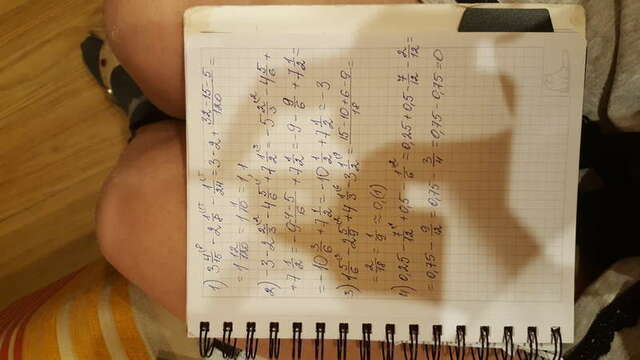 1) 3 4/15 ⁽⁸ - 2 1/8 ⁽¹⁵ - 1/24 ⁽⁵ = 3 - 2 + (32-15-5)/120 =
= 1 12/120 = 1 1/10 = 1,1
2) -3 - 2 2/3 ⁽² - 4 5/6 ⁽¹ + 7 1/2 ⁽³ = -5 2/3 ⁽² - 4 5/6 +
+ 7 1/2 = -9 (4-5)/6 + 7 1/2 = -9 - 9/6 + 7 1/2 =
= -10 3/6 + 7 1/2 = -10 1/2 + 7 1/2 = -3
3) 1 5/6 ⁽³ - 2 5/9 ⁽² + 4 1/3 ⁽⁶ - 3 1/2 ⁽⁹ = (15-10+6-9)/18 =
= 2/18 = 1/9 ≈ 0,(1)
4) 0,25 - 7/12 ⁽¹ + 0,5 - 1/6 ⁽² = 0,25 + 0,5 - 7/12 - 2/12 =
= 0,75 - 9/12 = 0,75 - 3/4 = 0,75 - 0,75 = 0